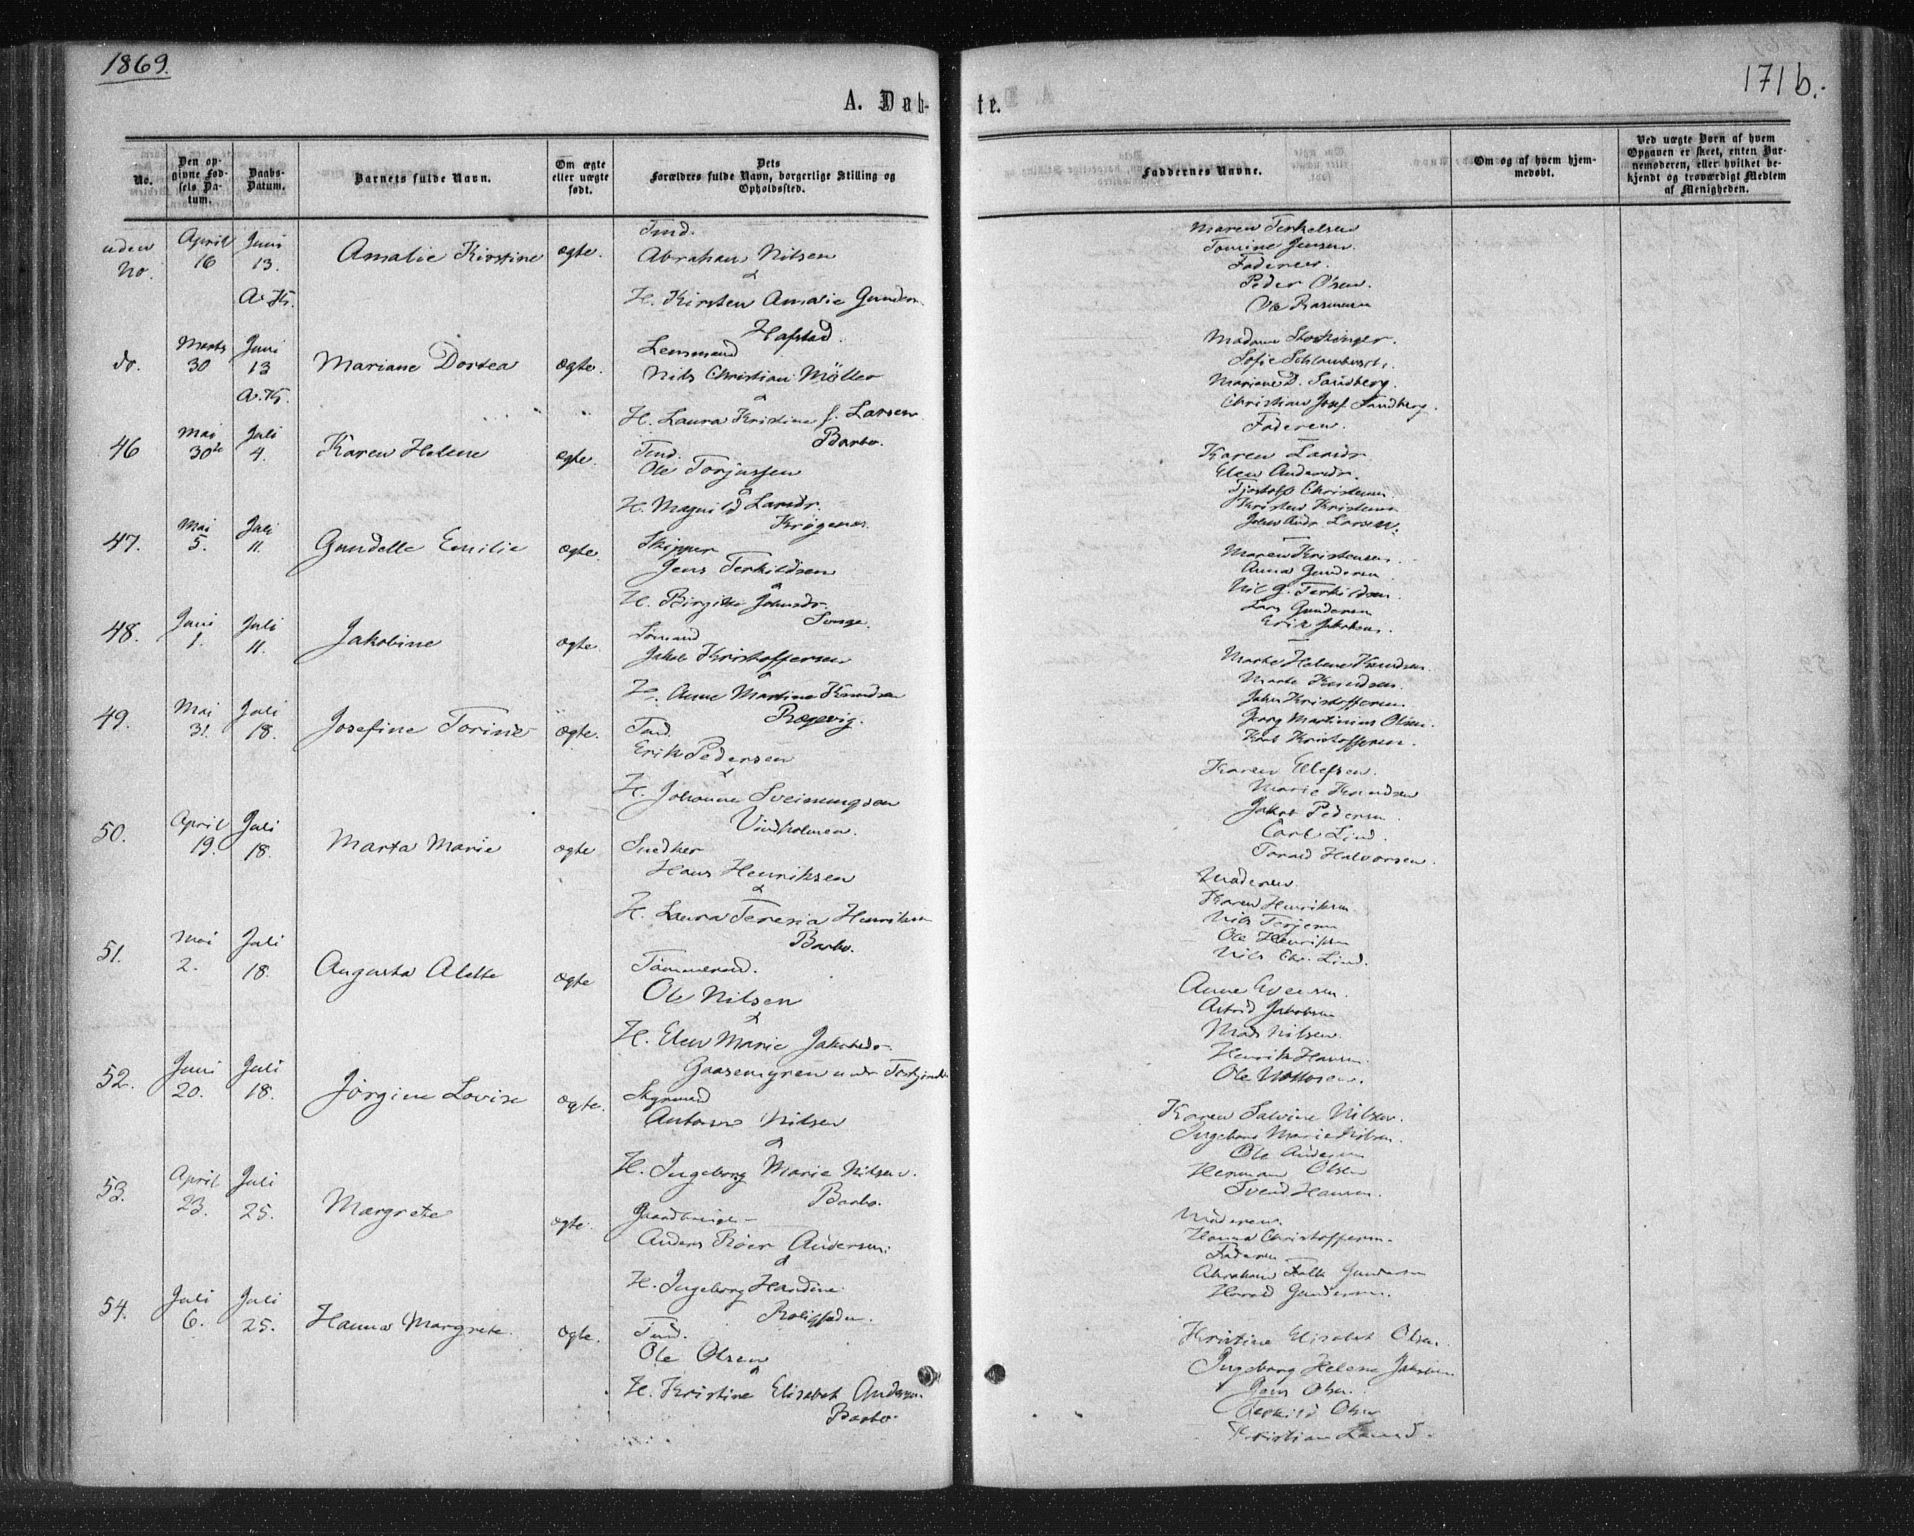 1869.
171 b.
A. Døb-te.
No.
Den opgivne Fødsels Datum.
Daabs-Datum.
Barnets fulde Navn.
Om ægte eller uægte født.
Dets Forældres fulde Navn, borgerlige Stilling og Opholdssted.
Faddernes Navne.
Om og af hvem hjemmedøbt.
Ved uægte Børn af hvem Opgaven er skeet, enten Barnemoderen, eller hvilket bekjendt og troværdigt Medlem af Menigheden.
uden No.
April 16
Juni 13.
A. K.
Amalie Kirstine
ægte.
Tmd.
Abraham Nilsen
&
H. Kirsten Amalie Gunders.
Hafstad.
Maren Terkelsen
Tomine Jensen.
Faderen.
Peder Olsen.
do.
Marts 30
Juni 13
A. K.
Mariane Dortea
ægte.
Lensmand
Nils Christian Möller
&
H. Laura Kristine f. Larsen
Barbo.
Madame Stockinger.
Mariane D. Sandberg.
Christian Josef Sandberg.
Faderen.
46
Mai 30te
Juli 4.
Karen Helene
ægte.
Tmd.
Ole Torjussen
&
H. Magnild Larsdr.
Krøgenes.
Karen Larsdr
Elen Andersdr.
Kristen Kristens
47.
Mai 5.
Juli 11.
Gundelle Emilie
ægte.
Skipper
Jens Terkildsen
&
H. Birgitte Johnsdr.
Songe.
Maren Kristensen.
Anna Gundersen
Nil G. Terkildsen.
Lars Gundersen
Erik Jakobsen.
48.
Juni 1.
Juli 11.
Jakobine
ægte.
Sømand
Jakob Kristoffersen
&
H. Anne Martine Knudsen
Rægevig.
Marte Helene Knudsen.
Marte Knudsen.
John Kristoffersen
Georg Martinius Olsen.
Knut Kristoffersen.
49.
Mai 31.
Juli 18.
Josefine Torine
ægte.
Tmd.
Erik Pedersen
&
H. Johanne Sveinungsen
Vindholmen.
Karen Ellefsen.
Marie Knudsen
Jakob Pedersen
Carl Lind.
Tarald Halvorsen.
50.
April 19.
Juli 18.
Marta Marie
ægte
Snedker
Hans Henriksen
&
H. Laura Teresia Henriksen
Barbo.
Moderen.
Karen Henriksen
Nils Terjesen
Ole Henriksen
Nils Chr. Lind.
51.
Mai 2.
Juli 18.
Augusta Alette
ægte
Tømmermd.
Ole Nilsen
&
H. Elen Marie Jakobsdr.
Gaasemyren
Anne Evensen.
Astrid Jakobsen
Mads Nilsen
Henrik Hansen
52.
Juni 20.
Juli 18.
Jørgine Lovise
ægte.
Styrmand
Anton Nilsen
&
H. Ingeborg Marie Nilsen.
Barbo.
Karen Salvine Nilsen.
Ingeborg Marie Nilsen.
Ole Andersen
Herman Olsen
Svend Hansen.
53.
April 23.
Juli 25.
Margrete
ægte.
Gaardbruger
Anders Röer Andersen.
&
H. Ingeborg Handine
Rolighjeden.
Moderen.
Hanna Christoffersen.
Faderen
Abraham Falk Gundersen
Harald Gundersen.
54.
Juli 6.
Juli 25.
Hanna Margrete.
ægte.
Tmd.
Ole Olsen
&
H. Kristine Elisabet Andersen.
Barbo.
Kristine Elisabet Olsen.
Ingeborg Helene Jakobsen
Jens Olsen.
Terkild Olsen